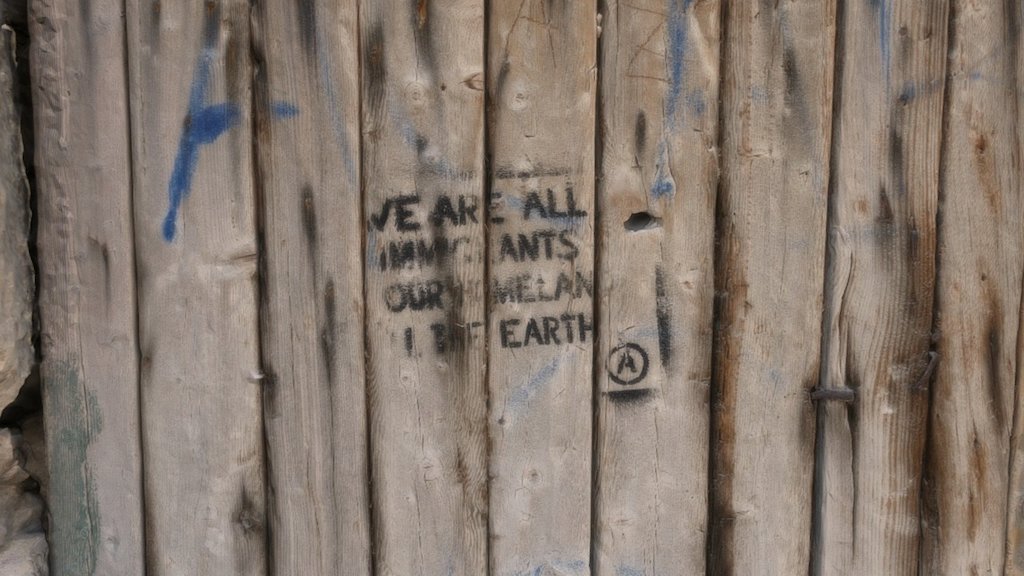 WE ARE ALL
IMMIGRANTS
OUR HOMELAND
THE EARTH
A